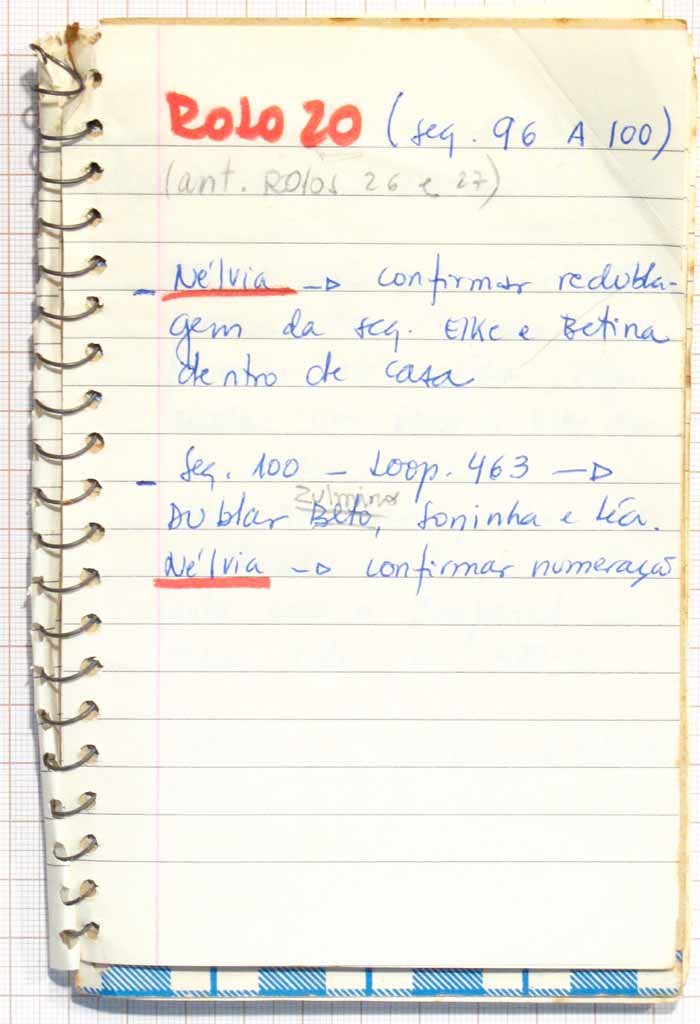 ROLO 20 (seq. 96 A 100)
(ant. ROlos 26 e 27)
- Nélvia -> confirmar redubla-
gem da seq. Elke e Betina
dentro de casa
- Seq. 100 - Loop. 463 ->
Zulmira
Dublar Beto, Soninha e Léa.
Nélvia -> confirmar numeração